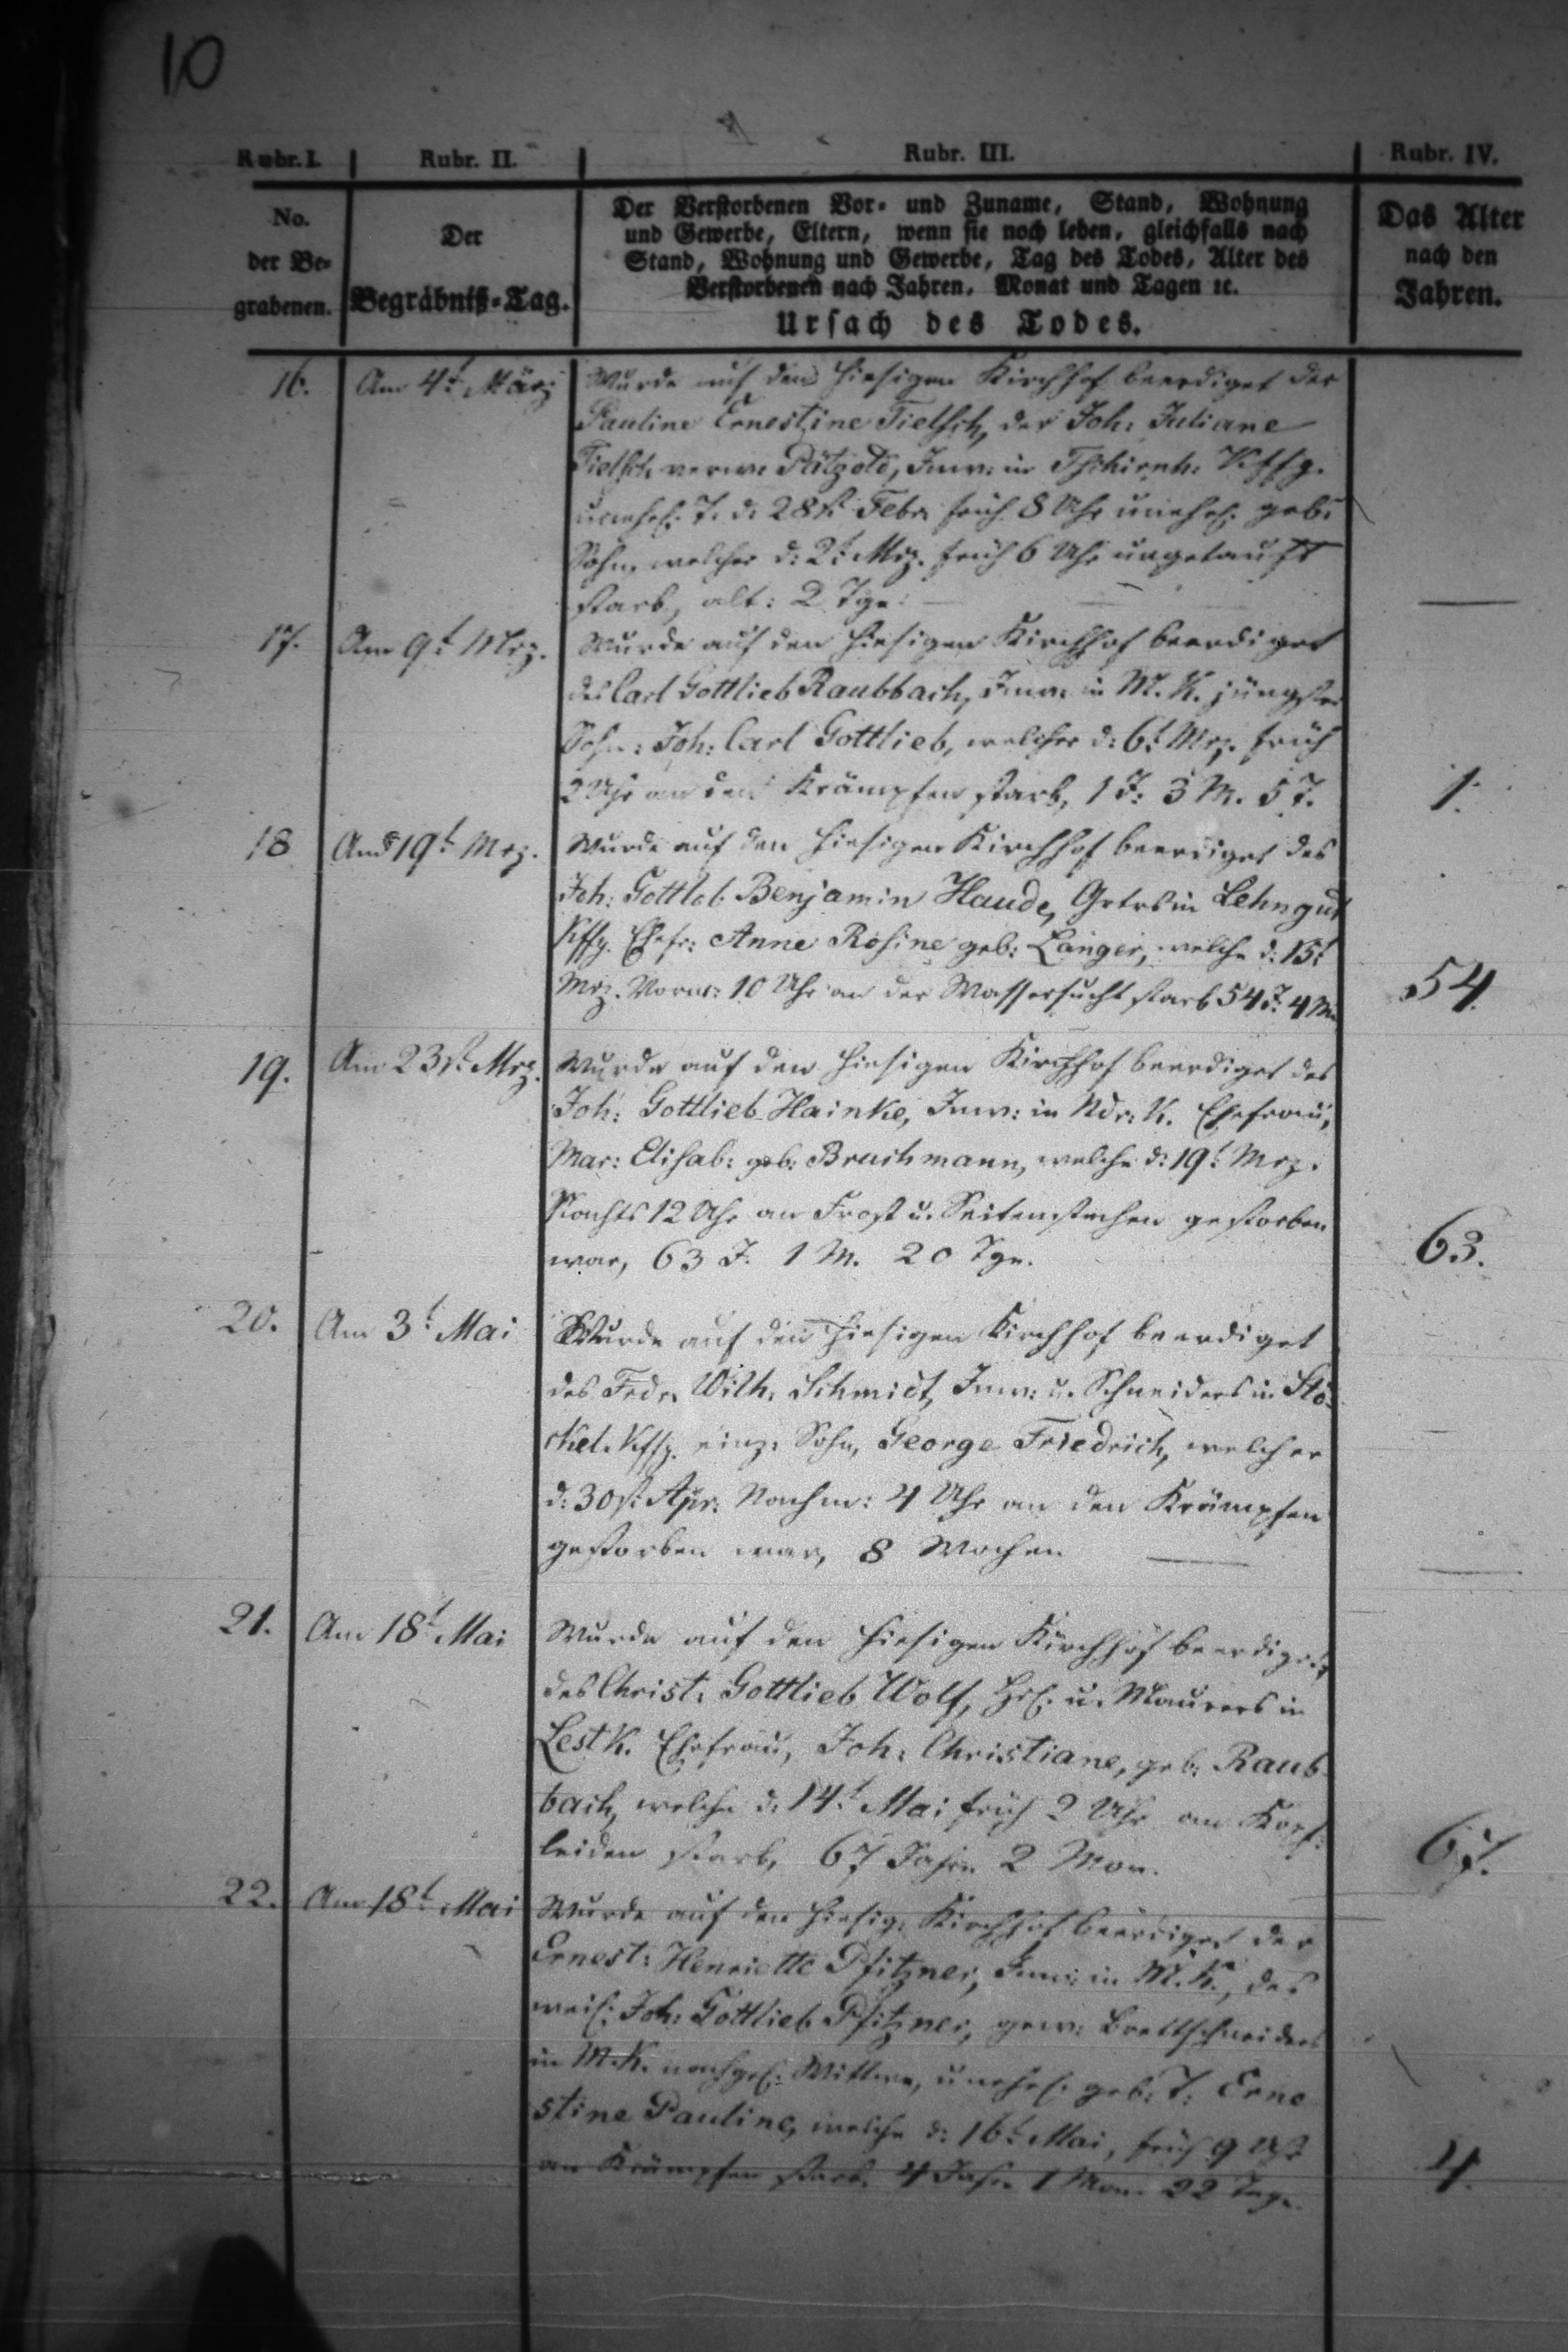 10
Rubr. I. Rubr. II. Rubr. III. Rubr. IV.
No. der Be-grabenen.
Der Begräbniß-Tag.
Der Verstorbenen Vor- und Zuname, Stand, Wohnung
und Gewerbe, Eltern, wenn sie noch leben, gleichfalls nach
Stand, Wohnung und Gewerbe, Tag des Todes, Alter des
Verstorbenen nach Jahren, Monat und Tagen ꝛc.
Ursach des Todes.
Das Alter nach den Jahren.
16. Am 4t. März Wurde auf den hiesigen Kirchhof beerdiget der
Pauline Ernestine Tielsch, der Joh: Juliane
Tielsch verw: Pätzold, Inw: in Tschirnh: Kffg.
unehel. T. d: 28st. Febr. früh 8 Uhr unehel. geb:
Sohn, welcher d: 2t. Mrz. früh 6 Uhr ungetauft
starb, alt: 2 Tge. —
17. Am 9t. Mrz. Wurde auf den hiesigen Kirchhof beerdiget
des Carl Gottlieb Raubbach, Inw: in M. K. jüngster
Sohn: Joh: Carl Gottlieb, welcher d: 6t. Mrz. früh
2 Uhr an den Krämpfen starb, 1 J: 3 M. 5 T. 1.
18 Am 19t. Mrz. Wurde auf den hiesigen Kirchhof beerdiget des
Joh: Gottlob Benjamin Haude, Grtrs in Lehngut
Kffg. Ehefr: Anne Rosine geb: Langer, welche d: 15t.
Mrz. Vorm: 10 Uhr an der Wassersucht starb 54 J. 4 M. 54.
19. Am 23st. Mrz. Wurde auf den hiesigen Kirchhof beerdiget des
Joh: Gottlieb Hainke, Inw: in Ndr: K. Ehefrau,
Mar: Elisab: geb: Bruchmann, welche d: 19t. Mrz.
Nachts 12 Uhr an Frost u. Seitenstechen gestorben
war, 63 J. 1 M. 20 Tge. 63.
20. Am 3t. Mai Wurde auf den hiesigen Kirchhof beerdiget
des Frdr. Wilh: Schmidt, Inw: u. Schneiders in Stö-
ckel. Kffg. einz: Sohn, George Friedrich, welcher
d: 30st. Apr. Nachm: 4 Uhr an den Krämpfen
gestorben war, 8 Wochen —
21. Am 18t. Mai Wurde auf den hiesigen Kirchhof beerdiget,
des Christ. Gottlieb Wolf, Hsl. u. Maurers in
Lest K. Ehefrau, Joh: Christiane, geb: Raub-
bach, welche d. 14t. Mai früh 2 Uhr an Kopf-
leiden starb, 67 Jahre 2 Mon. 67.
22. Am 18t. Mai Wurde auf den hiesig. Kirchhof beerdiget der
Ernest: Henriette Pfitzner, Inw: in M. K., des
weil. Joh: Gottlieb Pfitzner, gew: Brettschneiders
in M. K. nachgel. Wittwe, unehel. geb: T: Erne
stine Pauline, welche d: 16t. Mai, früh 9 Uhr
an Krämpfen starb. 4 Jahre 1 Mon. 22 Tage. 4.